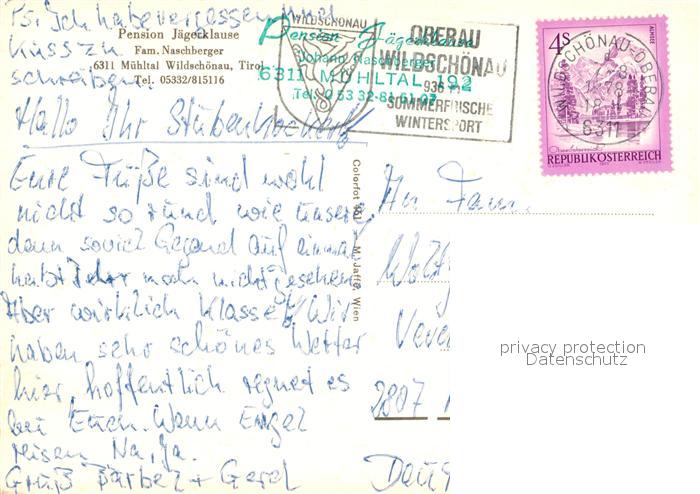 PS: Ich habe vergessen und
Kuss zu
schreiben.
Pension Jägerklause
Fam. Naschberger
6311 Mühltal Wildschönau, Tirol
Tel. 05332/815116
Pension Jägerklause
Johann Naschberger
6311 MÜHLTAL 192
Tel. 0 53 32-81 61 02
WILDSCHÖNAU
OBERAU
WILDSCHÖNAU
936 m
SOMMERFRISCHE
WINTERSPORT
4S
REPUBLIK ÖSTERREICH
WILDSCHÖNAU-OBERAU
6311
Hallo Ihr Stubenhocker!
Eure Füße sind wohl
nicht so rund wie unsere,
denn soviel Gegend auf einmal
habt Ihr noch nicht gesehen
Aber wirklich Klasse! Wir
haben sehr schönes Wetter
hier, hoffentlich regnet es
bei Euch. Wenn Engel
reisen Na, ja.
Gruß Bärbel + Gerd
Colorfot
M. Jaffé, Wien
An Fam.
2807
privacy protection
Datenschutz